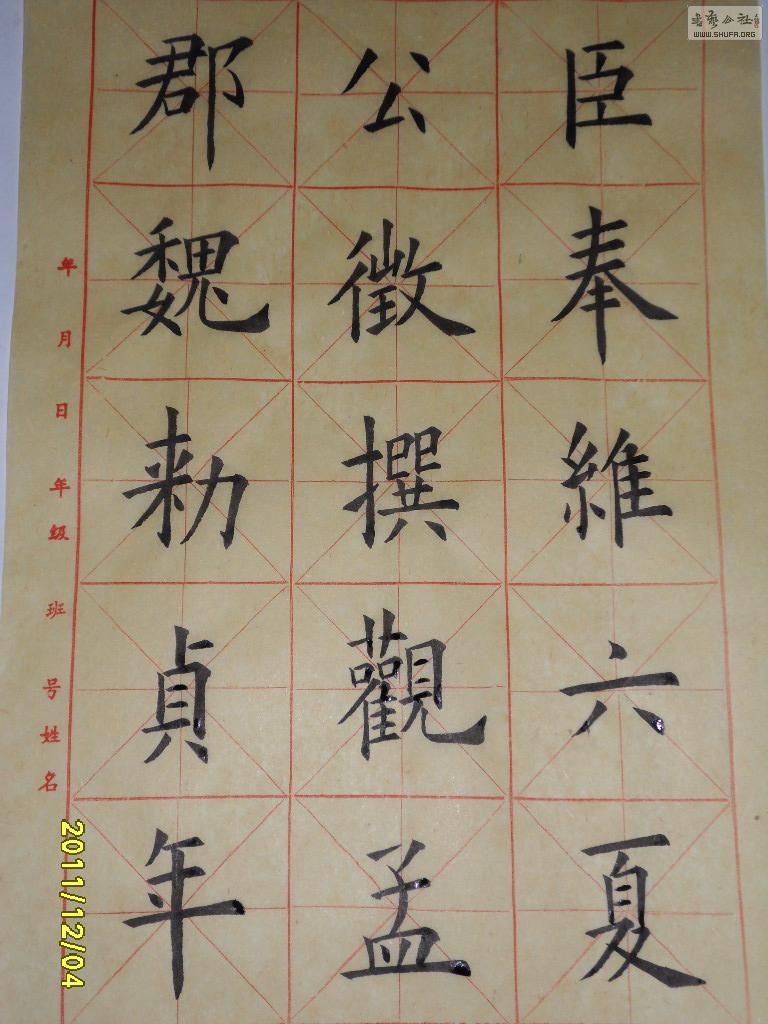 郡公臣
魏徵奉
勑撰維
貞觀六
年孟夏
年 月 日 年级 班 号 姓名
2011/12/04
書藝公社
WWW.SHUFA.ORG